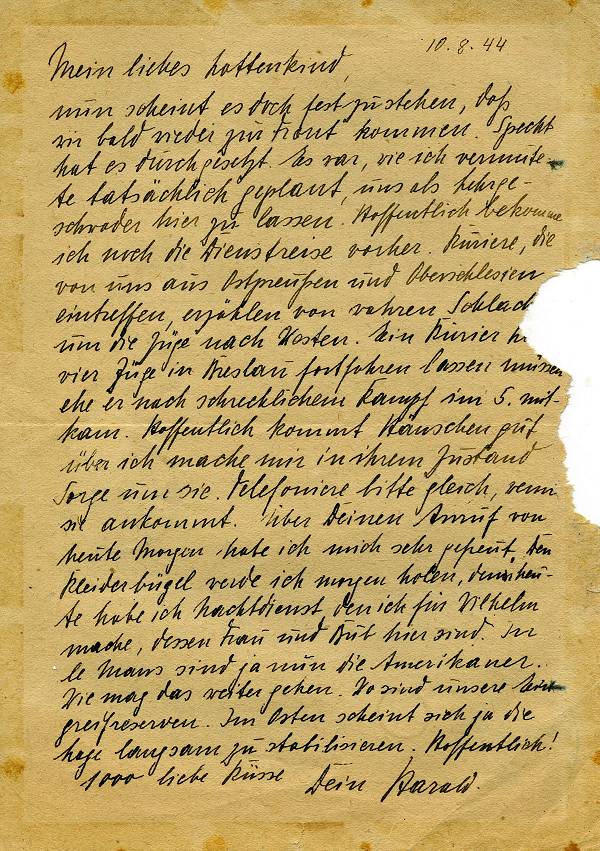 10.8.44
Mein liebes Lottenkind,
nun scheint es doch fest zu stehen, daß
wir bald wieder zur Front kommen. Specht
hat es durchgesetzt. Es war, wie ich vermute-
te tatsächlich geplant, uns als Lehrge-
schwader hier zu lassen. Hoffentlich bekomme
ich noch die Dienstreise vorher. Kuriere, die
von uns aus Ostpreußen und Oberschlesien
eintreffen, erzählen von wahren Schlach
um die Züge nach Westen. Ein Kurier h
vier Züge in Breslau fortfahren lassen müssen
ehe er nach schrecklichem Kampf im 5. mit-
kam. Hoffentlich kommt Hänschen gut
über ich mache mir in ihrem Zustand
Sorge um sie. Telefoniere bitte gleich, wenn
sie ankommt. Über Deinen Anruf von
heute Morgen habe ich mich sehr gefreut. Den
Kleiderbügel werde ich morgen holen, denn heu-
te habe ich Nachtdienst den ich für Wilhelm
mache, dessen Frau und Bub hier sind. In
le Mans sind ja nun die Amerikaner.
Wie mag das weiter gehen. Wo sind unsere
greifreserven. Im Osten scheint sich ja die
Lage langsam zu stabilisieren. Hoffentlich!
1000 liebe Küsse Dein Harald.